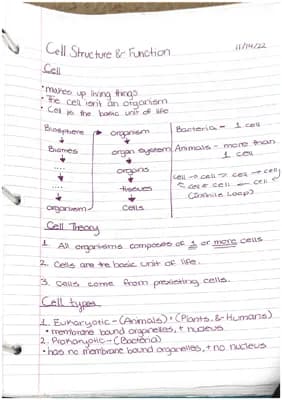 Cell Structure & Function 11/14/22
Cell
• makes up living things
• The cell isn't an organism
• Cell is the basic unit of life
Biosphere
Biomes
....
....
organism
organism
organ system
organs
tissues
cells
Bacteria - 1 cell
Animals - more than
1 cell
cell → cell → cell → cell
cell ← cell ← cell
(Infinite Loop)
Cell Theory
1. All organisms composes of 1 or more cells
2. Cells are the basic unit of life.
3. Cells come from preexisting cells.
Cell types
1. Eukaryotic - (Animals) + (Plants & Humans)
• membrane bound organelles, + nucleus
2. Prokaryotic - (Bacteria)
• has no membrane bound organelles, + no nucleus